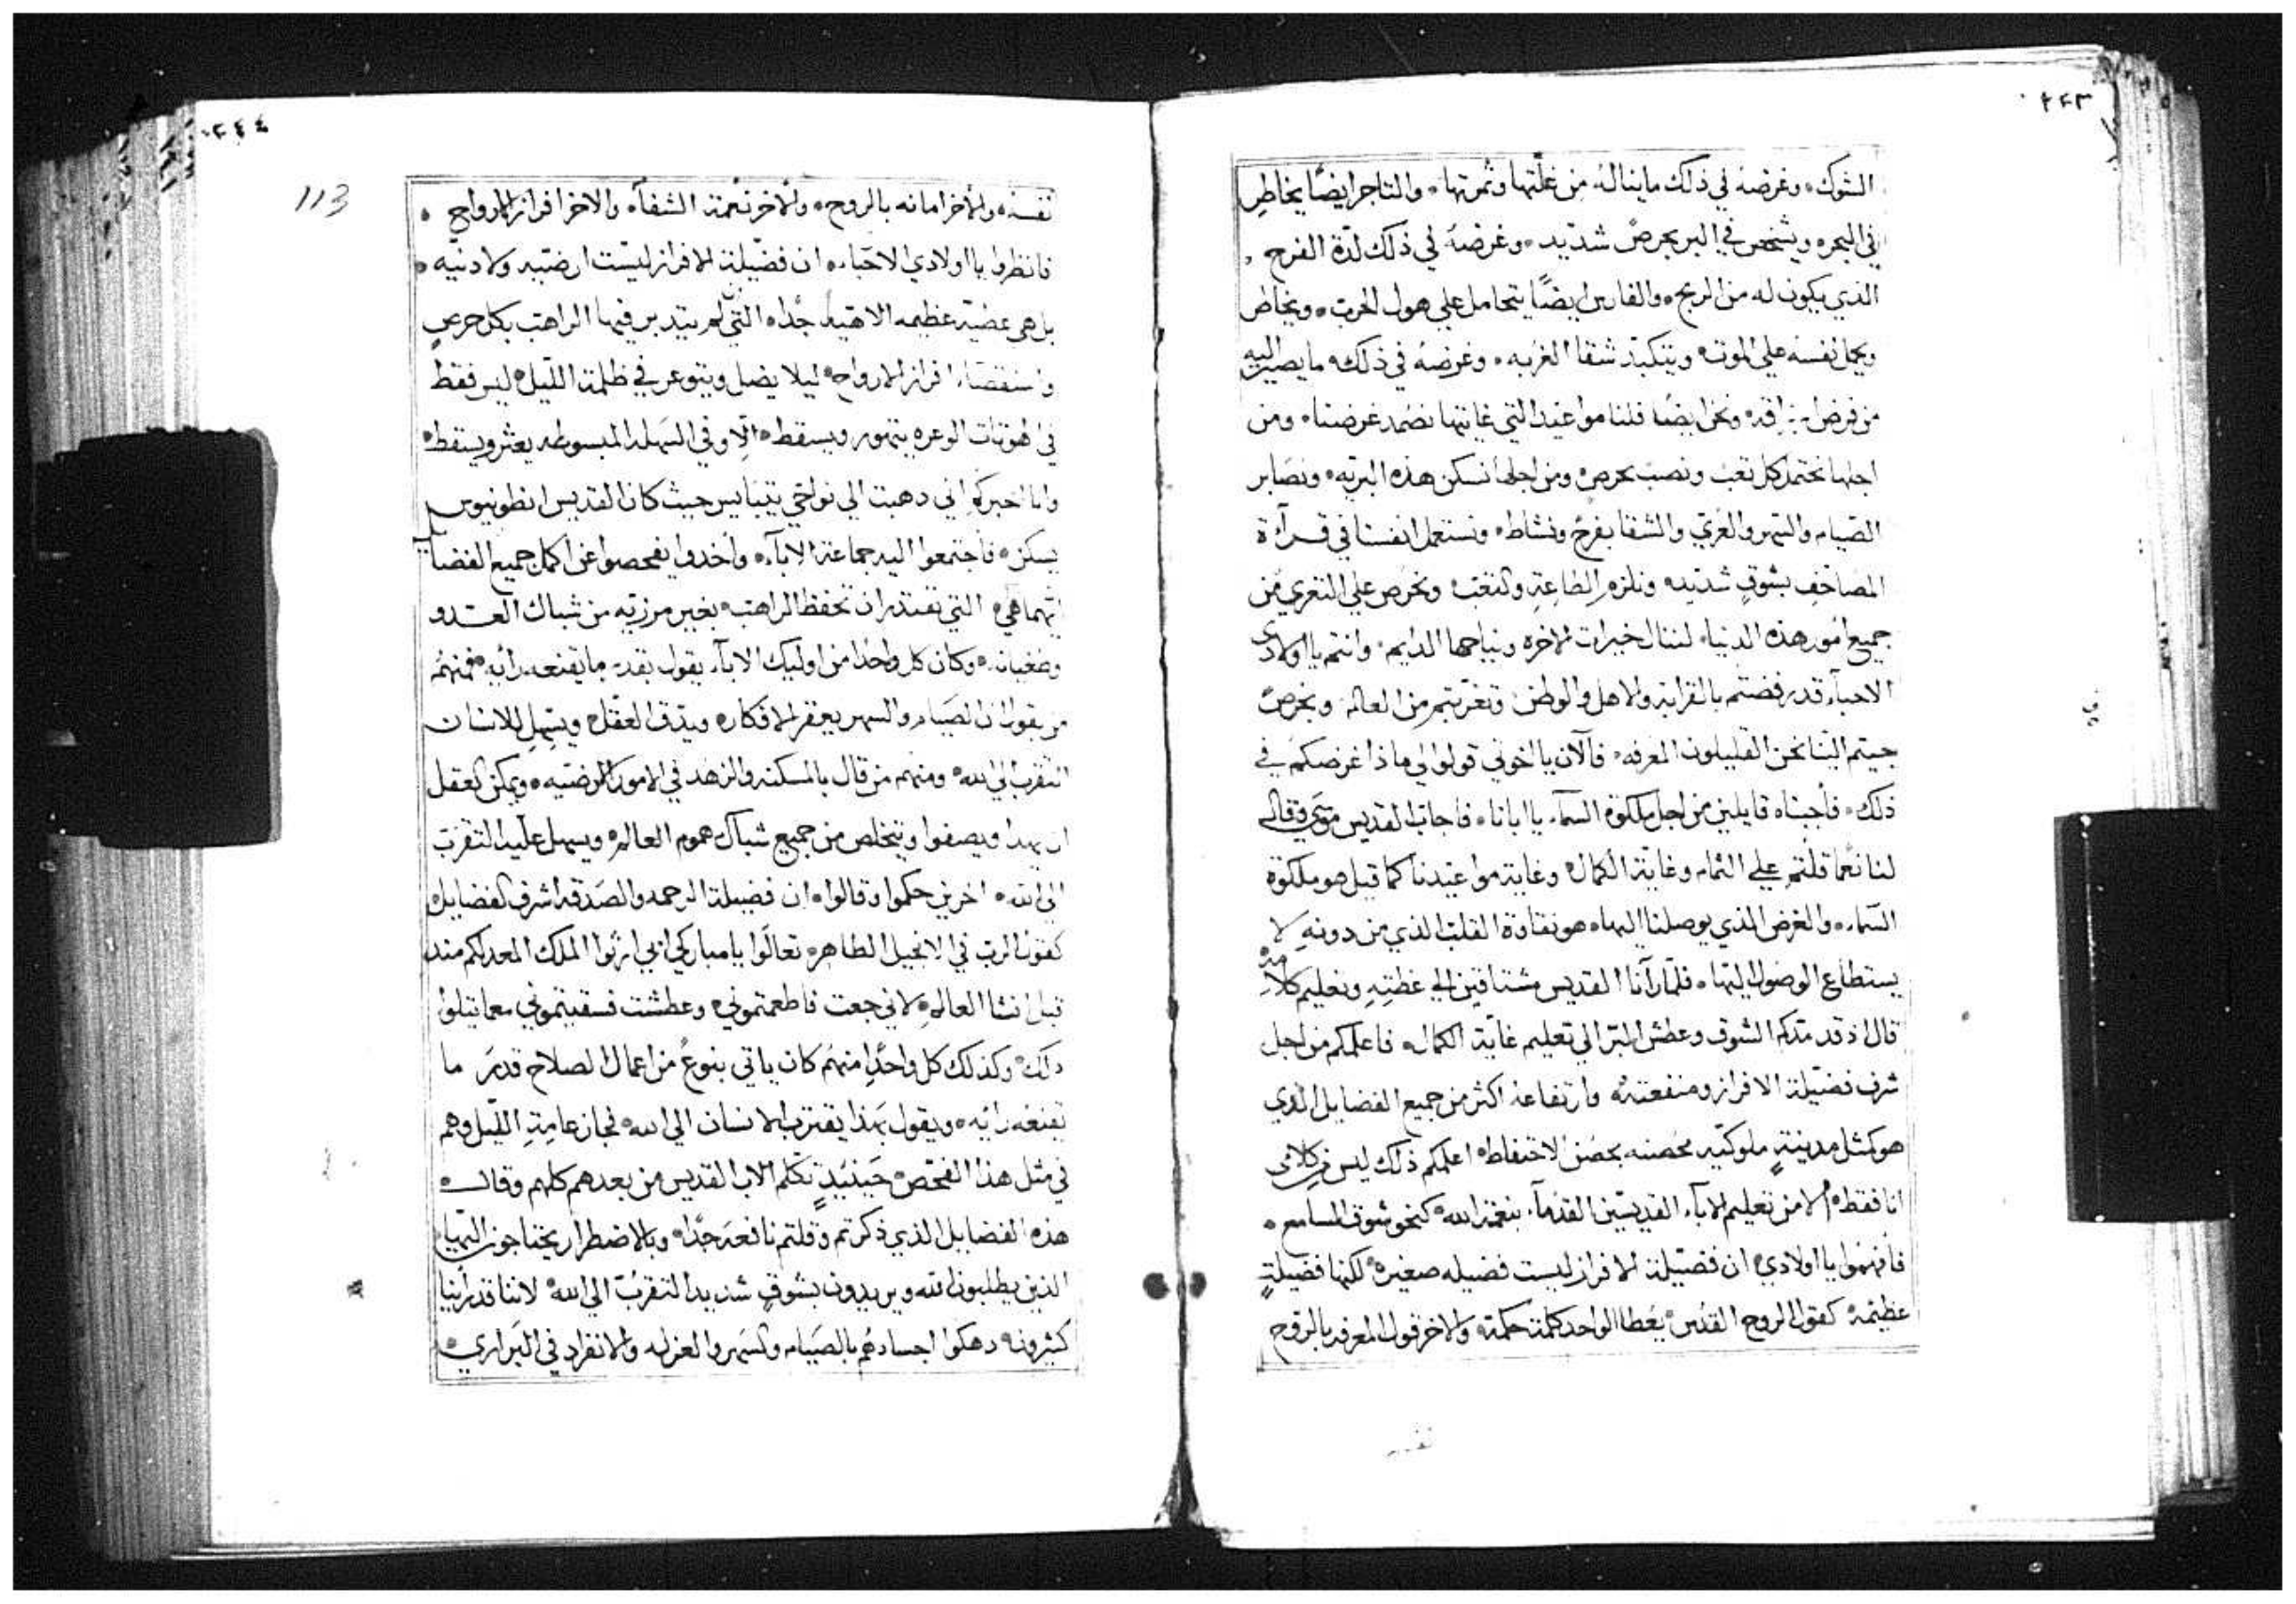 ٢٤٣
الشوك ، وغرضه في ذلك ما يناله من غلّتها وثمرتها ، والتاجر ايضًا يخاطر
في البحر ، ويشخص في البر بحرص شديد ، وغرضه في ذلك لذة الفرح ،
الذي يكون له من الربح ، والفارس ايضًا يتحامل علي هول الحرب ، ويخاطر
ويحمل نفسه علي الموت ، ويتكبد شقا الغربه ، وغرضه في ذلك ما يصير اليه
من ونحن ايضًا فلنا مواعيد التي غايتها نصمد غرضنا ، ومن
اجلها نحتمل كل تعب ونصب بحرص ومن اجلها نسكن هذه البريه ، ونصابر
الصيام والسهر والعري والشقا بفرح ونشاط ، ونستعمل انفسنا في قرآة
المصاحف بشوق شديد ونلزم الطاعة والتعب ونحرص علي التعري من
جميع امور هذه الدنيا ، لننال خيرات الاخره ونياحها الدايم ، وانتم يا اولادى
الاحباء قد رفضتم بالقرابة والاهل والوطن وتغربتم من العالم وبحرص
جيتم الينا نحن القليلون المعرفه ، فالآن يا اخوتي قولوا لي ماذا غرضكم في
ذلك ، فأجبناه قايلين من اجل ملكوة السماء يا ابانا ، فاجاب القديس موسى وقال
لنا نعما قلتم علي التمام وغاية الكمال وغاية مواعيدنا كما قيل هو ملكوة
السماء ، والغرض الذي يوصلنا اليها ، هو نقاوة القلب الذي من دونه لا
يستطاع الوصول اليها ، فلما رآنا القديس مشتاقين الي عظته وتعليم كلامه
قال اذ قد متكم الشوق وعطش البر الي تعليم غاية الكمال ، فاعلمكم من اجل
شرف فضيلة الافراز ومنفعته وارتفاعه اكثر من جميع الفضايل الذي
هو كمثل مدينة ملوكيه محصنه بحصن الاحتفاظ ، اعلمكم ذلك ليس من كلامى
انا فقط ، الا من تعليم الآباء القديسين القدماء بنعمة الله كنحو شوق السامع ،
فافهموا يا اولادي ان فضيلة الافراز ليست فضيله صغيره لكنها فضيلة
عظيمة كقول الروح القدس يعطا الواحد كلمة حكمة ، والاخر قول المعرفه بالروح
٢٤٤
113
نفسه ، والاخر امانه بالروح ، والاخر نعمة الشفاء ، والاخر افراز الارواح ،
فانظروا يا اولادي الاحباء ، ان فضيلة الافراز ليست ارضيه ولا دنيه ،
بل هي عطية عظيمه الاهية جدًا ، التي لم يتدبر فيها الراهب بكل حرص
واستقصاء افراز الارواح ليلا يضل ويتوعر في ظلمة الليل ليس فقط
في الهوتات الوعره يتهور ويسقط ، الا وفي السهلة المبسوطه يعثر ويسقط
وانا اخبركم اني دهبت الي نواحي تيبايس حيث كان القديس انطونيوس
يسكن ، فاجتمعوا اليه جماعة الاباء ، واخدوا يفحصوا عن اكمل جميع الفضايل
ايهما هي التي تقتدر ان تحفظ الراهب بغير مرزيه من شباك العدو
وطغيانه ، وكان كل واحدًا من اوليك الاباء يقول بقدر ما يقنعه رأيه ، فمنهم
من يقول ان الصيام والسهر يحقر الافكار ، ويدق العقل ويسهل للانسان
التقرب الي الله ، ومنهم من قال بالمسكنه والزهد في الامور الارضيه ، ويمكن العقل
ان يهدا ويصفوا ويتخلص من جميع شباك هموم العالم ويسهل عليه التقرب
الي الله ، اخرين حكموا وقالوا ، ان فضيلة الرحمه والصدقه اشرف الفضايل
كقول الرب في الانجيل الطاهر ، تعالوا يا مباركي ابي ارثوا الملك المعد لكم مند
قبل انشا العالم ، لاني جعت فاطعمتموني وعطشت فسقيتموني مع ما يتلوا
ذلك ، وكذلك كل واحدًا منهم كان ياتي بنوع من اعمال الصلاح قدر ما
يقنعه رايه ، ويقول بهذا يقترب الانسان الي الله ، فجاز عامة الليل وهم
في مثل هذا الفحص حينيد تكلم الاب القديس من بعدهم كلهم وقال
هذه الفضايل الذي ذكرتم وقلتم نافعه جدًا ، وبالاضطرار يحتاجون اليها
الذين يطلبون الله ويريدون بشوق شديد التقرب الي الله لاننا قد راينا
كثيرون ، دهكوا اجسادهم بالصيام والسهر والعزله والانفراد في البراري